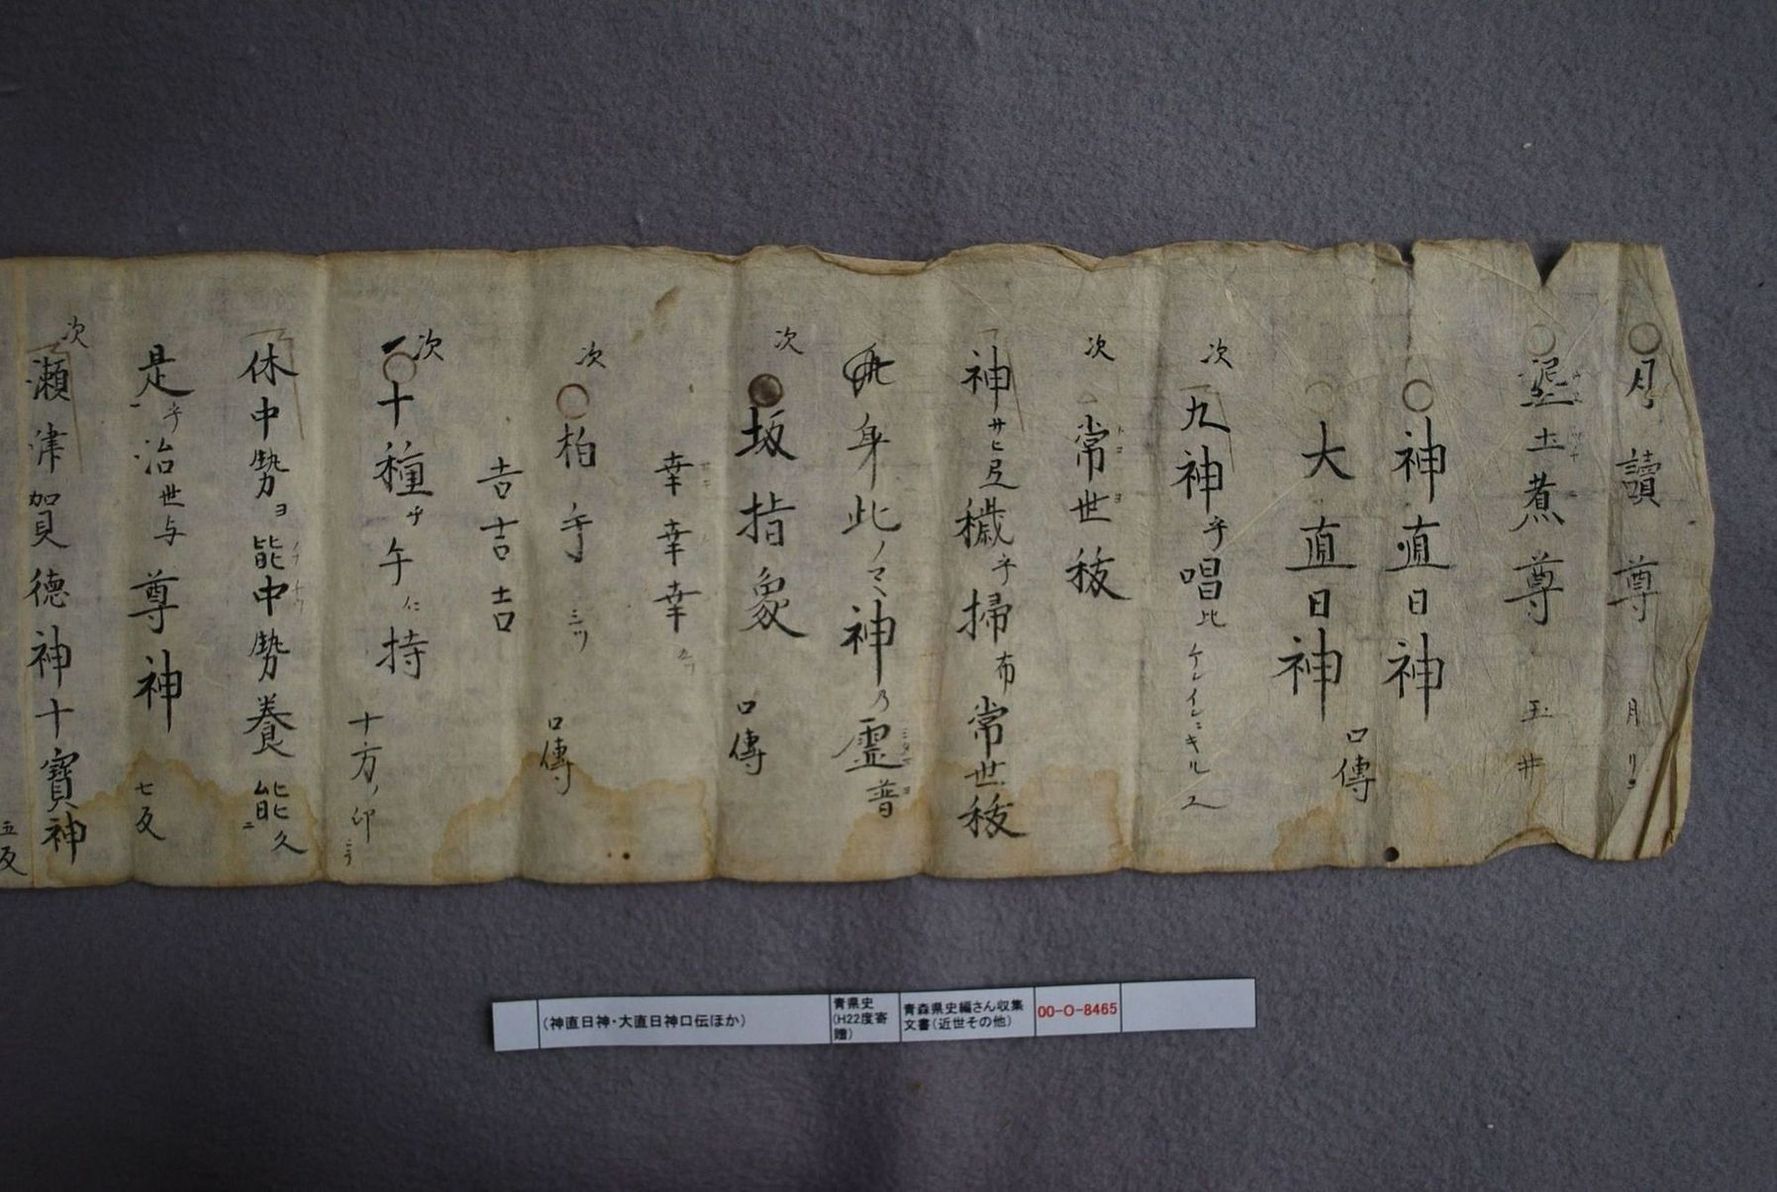 ○月讀尊 月リコ
○埿土煮尊 玉井
○神直日神
○大直日神 口傳
次 九神乎唱比
次 常世秡
神サヒ㞐穢乎掃布常世秡
此身此ノマヽ神乃霊普
次 ●坂指象 口傳
幸幸幸
次 ○柏手 三ツ 口傳
吉吉吉
次 一○十種ヲ午仁持 十方ノ印
休中勢ヨ能中勢養能久
是乎治世与尊神 七反
次 瀬津賀德神十寶神
五反
(神直日神・大直日神口伝ほか)
青県史(H22度寄贈)
青森県史編さん収集文書(近世その他)
00-O-8465